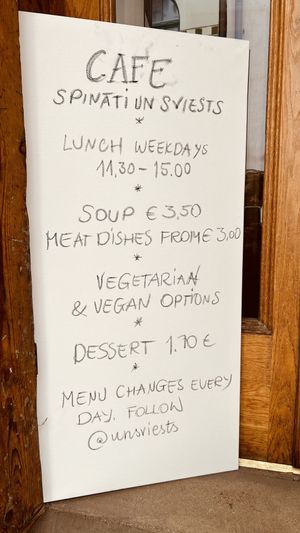 CAFE
SPINATI UN SVIESTS
*
LUNCH WEEKDAYS
11,30-15.00
*
SOUP € 3,50
MEAT DISHES FROM € 3,00
*
VEGETARIAN
& VEGAN OPTIONS
*
DESSERT 1.70 €
*
MENU CHANGES EVERY
DAY. FOLLOW
@unsviests